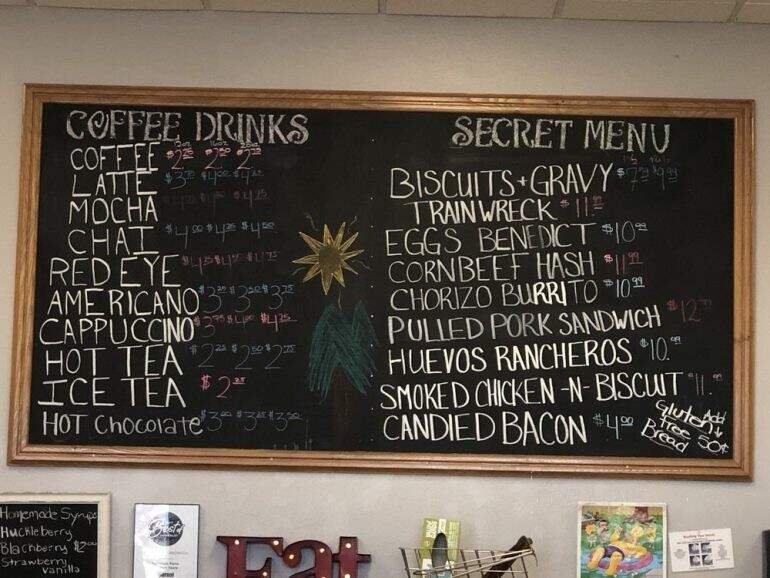 COFFEE DRINKS
12oz 16oz 20oz
COFFEE $2.25 $2.50 $2.75
LATTE $3.75 $4.00 $4.25
MOCHA
CHAI $4.00 $4.25 $4.50
RED EYE $4.75
AMERICANO $3.25 $3.50 $3.75
CAPPUCCINO $3.75 $4.00 $4.25
HOT TEA $2.25 $2.50 $2.75
ICE TEA $2.25
HOT Chocolate $3.00 $3.25 $3.50
SECRET MENU
BISCUITS + GRAVY $7.99 $9.99
TRAINWRECK $11.99
EGGS BENEDICT $10.99
CORNBEEF HASH $11.99
CHORIZO BURRITO $10.99
PULLED PORK SANDWICH $12.99
HUEVOS RANCHEROS $10.99
SMOKED CHICKEN -N- BISCUIT $11.99
CANDIED BACON $4.00
Gluten Free Bread
Add 50¢
Homemade Syrups
Huckleberry
Blackberry $2.00
Strawberry
Vanilla
Best of
Eat